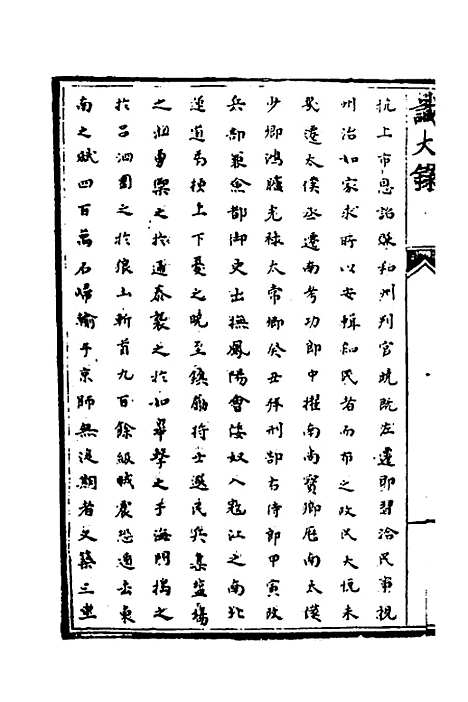 識大錄
抗上市恩詔降和州判官曉既左遷即習洽民事視
州治如家求所以安輯和民者而布之政民大悦未
旲遷太僕丞遷南考功郎中擢南尚寶卿歷南太僕
少卿鴻臚光禄太常卿癸丑拜刑部右侍郎甲寅改
兵部兼僉都御史出撫鳳陽會倭奴入寇江之南北
運道為梗上下憂之曉至鎮勵将士選民兵集塩場
之壯勇禦之於通泰襲之於如皋擊之于海門搗之
於吕泗圍之於狼山斬首九百餘級賊震恐遁去東
南之賦四百萬石歸輸于京師無後期者又築三